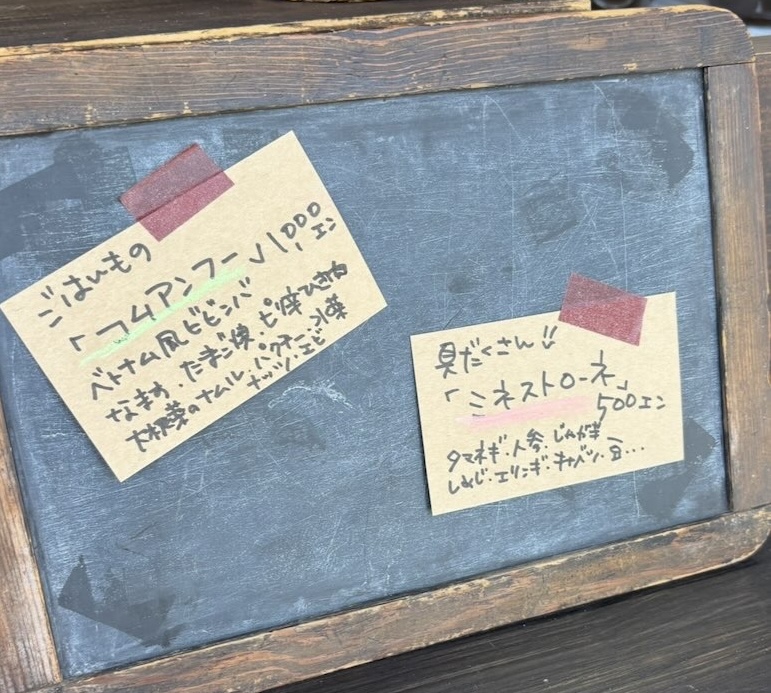 ごはんもの
「コムアンフー」1,000エン
ベトナム風ビビンバ
なます・たまご焼・ピリ辛ひき肉
大根葉のナムル・パクチー・水菜
ナッツ・エビ
具だくさん!!
「ミネストローネ」
500エン
タマネギ・人参・じゃがいも
しめじ・エリンギ・キャベツ・豆…